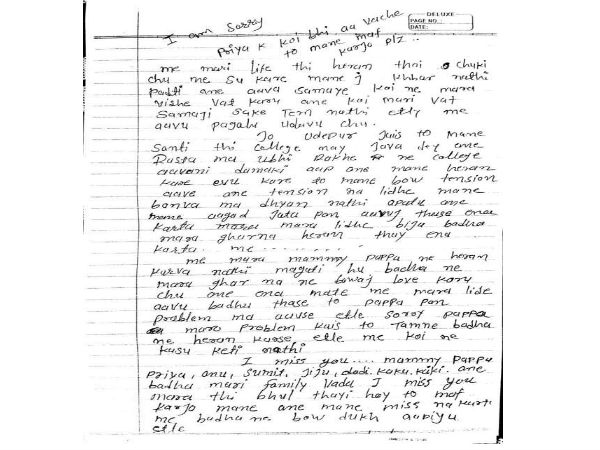 DELUXE
PAGE NO.:
DATE:
I am Sorry
Priya k koi bhi aa vache
to mane maf
karjo plz..
me mari life thi heran thai chuki
chu me su kare mane j khbar nathi
padti ane aava samaye koi ne mara
vishe vat karu ane koi mari vat
Samaji sake tem nathi etle me
aavu pagalu Udavu chu.
Jo Udepur Jais to mane
Santi thi college may Java dey ane
Rasta ma ubhi Rakhe ne college
aavani damaki aap ane mane heran
kare evu kare to mane bow tension
aave ane tension na lidhe mane
banva ma dhyan nathi apatu ane
aagad Jata pan aavuj thase ena
karta mara lidhe bija badha
mara gharna heran thay ena
karta me ..........
me mara mammy pappa ne heran
karva nathi magati hu badha ne
mara ghar na ne bowaj love karu
chu ane ena mate me mara lide
aavu badhu thase to pappa pan
problem ma aavse etle sorry pappa
maro problem kais to tamne badha
ne heran karse etle me koi ne
kasu keti nathi
I miss you.... mammy pappa
priya, anu, Sumit, Jiju, dadi, kaku, kaki. ane
badha mari family vada I miss you
mara thi bhul thayi hoy to maf
karjo mane ane mane miss na karta
me badha ne bow dukh aapiyu
etle